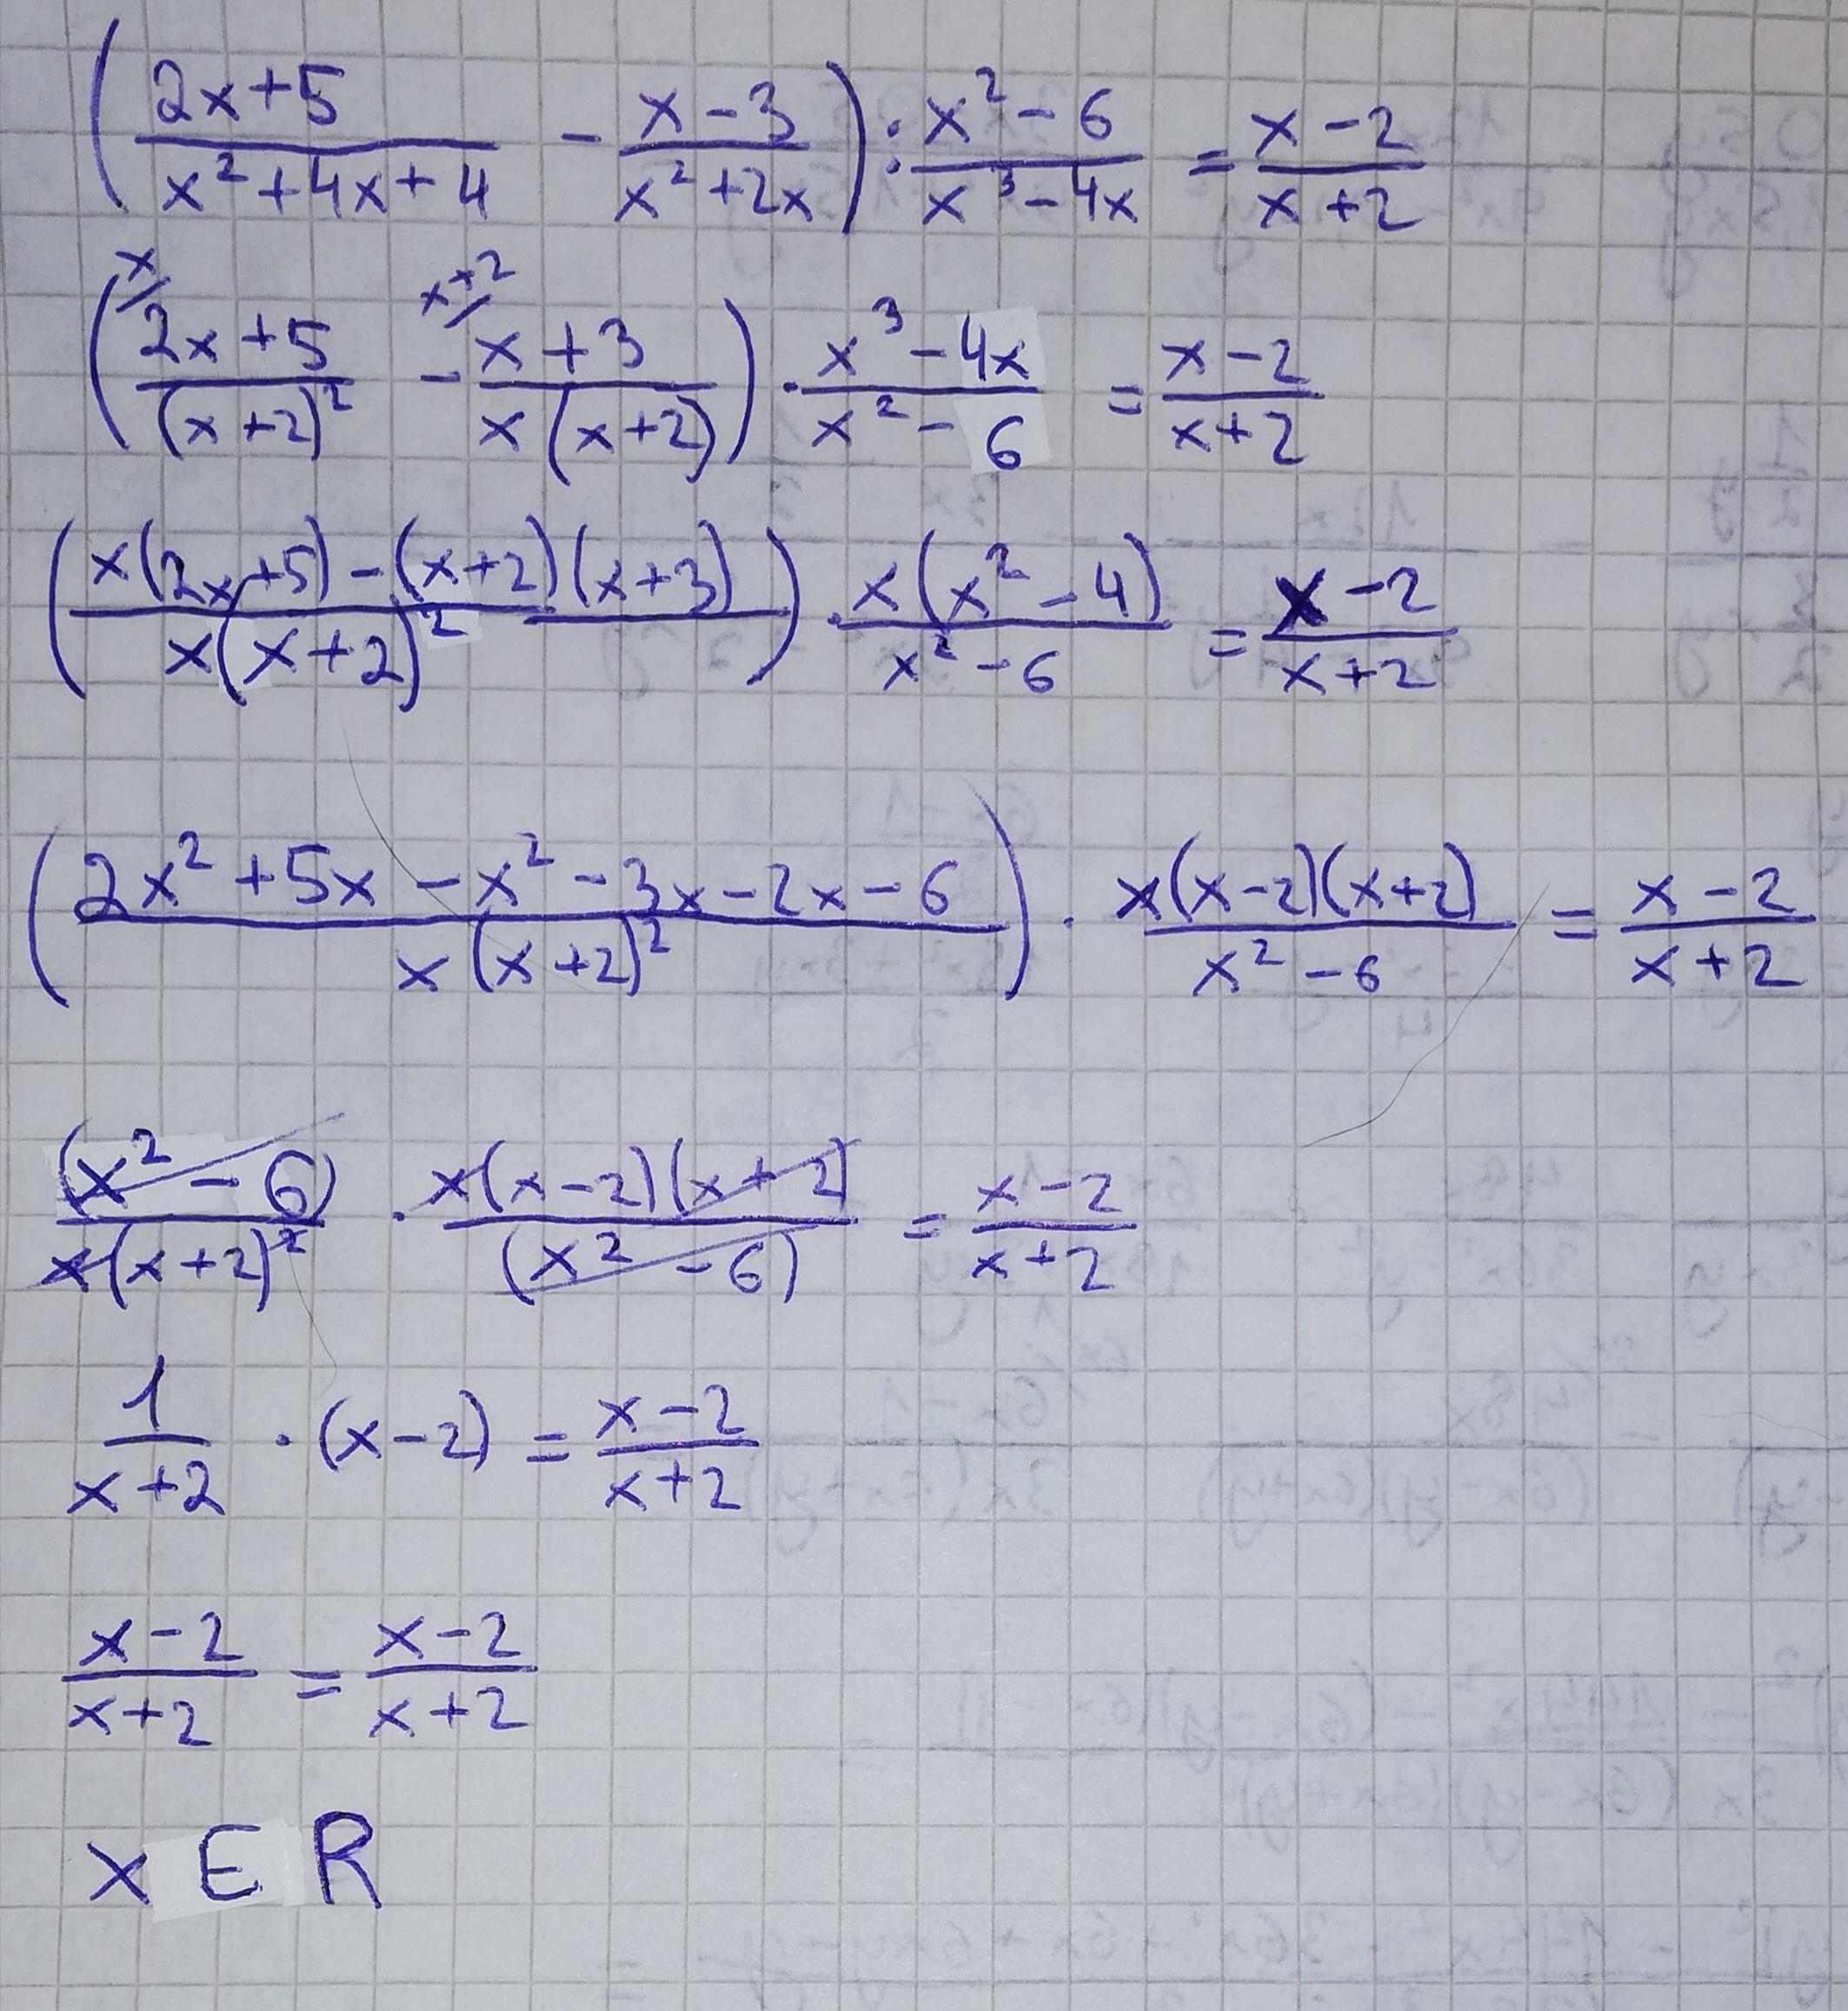 (2x+5 / x²+4x+4 - x-3 / x²+2x) : x²-6 / x³-4x = x-2 / x+2
(x/ 2x+5 / (x+2)² - x+2/ x+3 / x(x+2)) · x³-4x / x²-6 = x-2 / x+2
(x(2x+5)-(x+2)(x+3) / x(x+2)²) · x(x²-4) / x²-6 = x-2 / x+2
(2x²+5x-x²-3x-2x-6 / x(x+2)²) · x(x-2)(x+2) / x²-6 = x-2 / x+2
(x²-6) / x(x+2)² · x(x-2)(x+2) / (x²-6) = x-2 / x+2
1 / x+2 · (x-2) = x-2 / x+2
x-2 / x+2 = x-2 / x+2
x E R